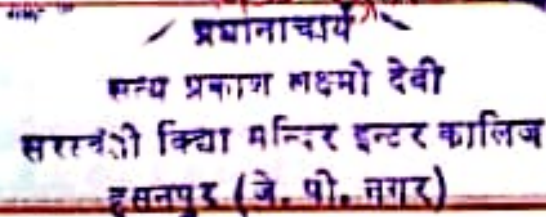 प्रधानाचार्य
सत्य प्रकाश लक्ष्मी देवी
सरस्वती विद्या मन्दिर इन्टर कालिज
हसनपुर (जे. पी. नगर)